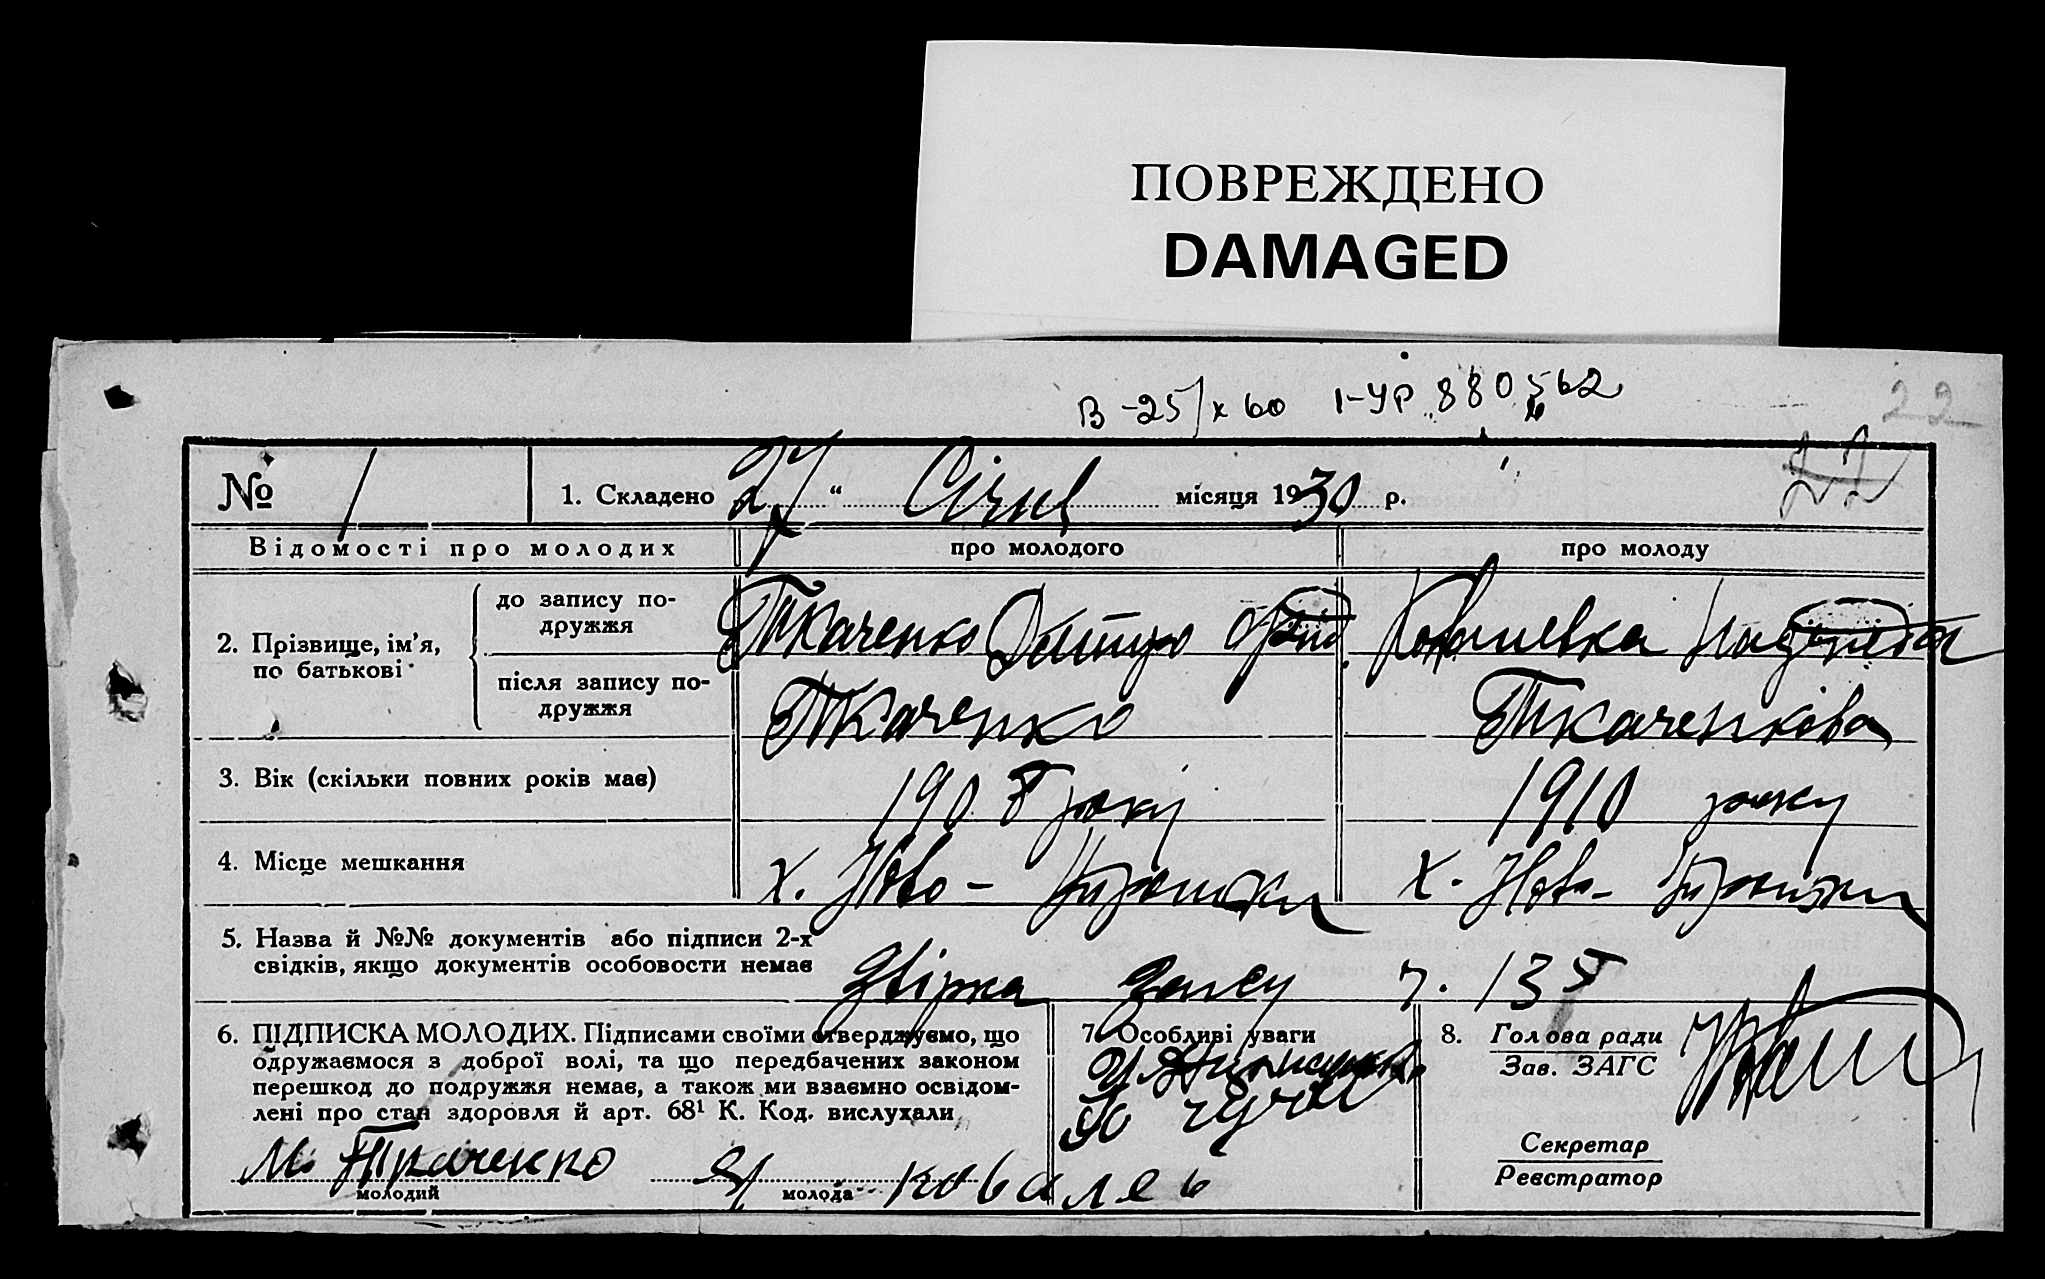 ПОВРЕЖДЕНО
DAMAGED
В-25/х 60 1-УР 880562
22
22
№ 1
1. Складено 27 “ Січня місяця 1930 р.
Відомості про молодих про молодого про молоду
2. Прізвище, ім’я, по батькові
до запису подружжя Ткаченко Дмитро
після запису подружжя Ткаченко Ткаченкова
3. Вік (скільки повних років має) 190 року 1910 року
4. Місце мешкання х. Ново- х. Ново-
5. Назва й №№ документів або підписи 2-х
свідків, якщо документів особовости немає
Звірка Загсу ч. 135
6. ПІДПИСКА МОЛОДИХ. Підписами своїми стверджуємо, що
одружаємося з доброї волі, та що передбачених законом
перешкод до подружжя немає, а також ми взаємно освідом-
лені про стан здоровля й арт. 68¹ К. Код. вислухали
М. Ткаченко
молодий
молода
Ковалев
7. Особливі уваги
8. Голова ради
Зав. ЗАГС
Секретар
Реєстратор